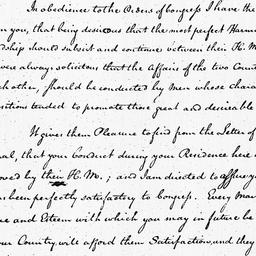 In obedience to the Orders of Congress I have the
you, that being desirous that the most perfect Harmo
dship should subsist and continue between their H. M
were always solicitous that the Affairs of the two Coun
ch other, should be conducted by Men whose chara
sitions tended to promote those great and desireable
It gives them Pleasure to find from the Letter of
al, that your Conduct during your Residence here
oved by their H. M.; and I am directed to assure you
been perfectly satisfactory to Congress. Every Mar
and Esteem with which you may in future be
our Country, will afford them Satisfaction, and they